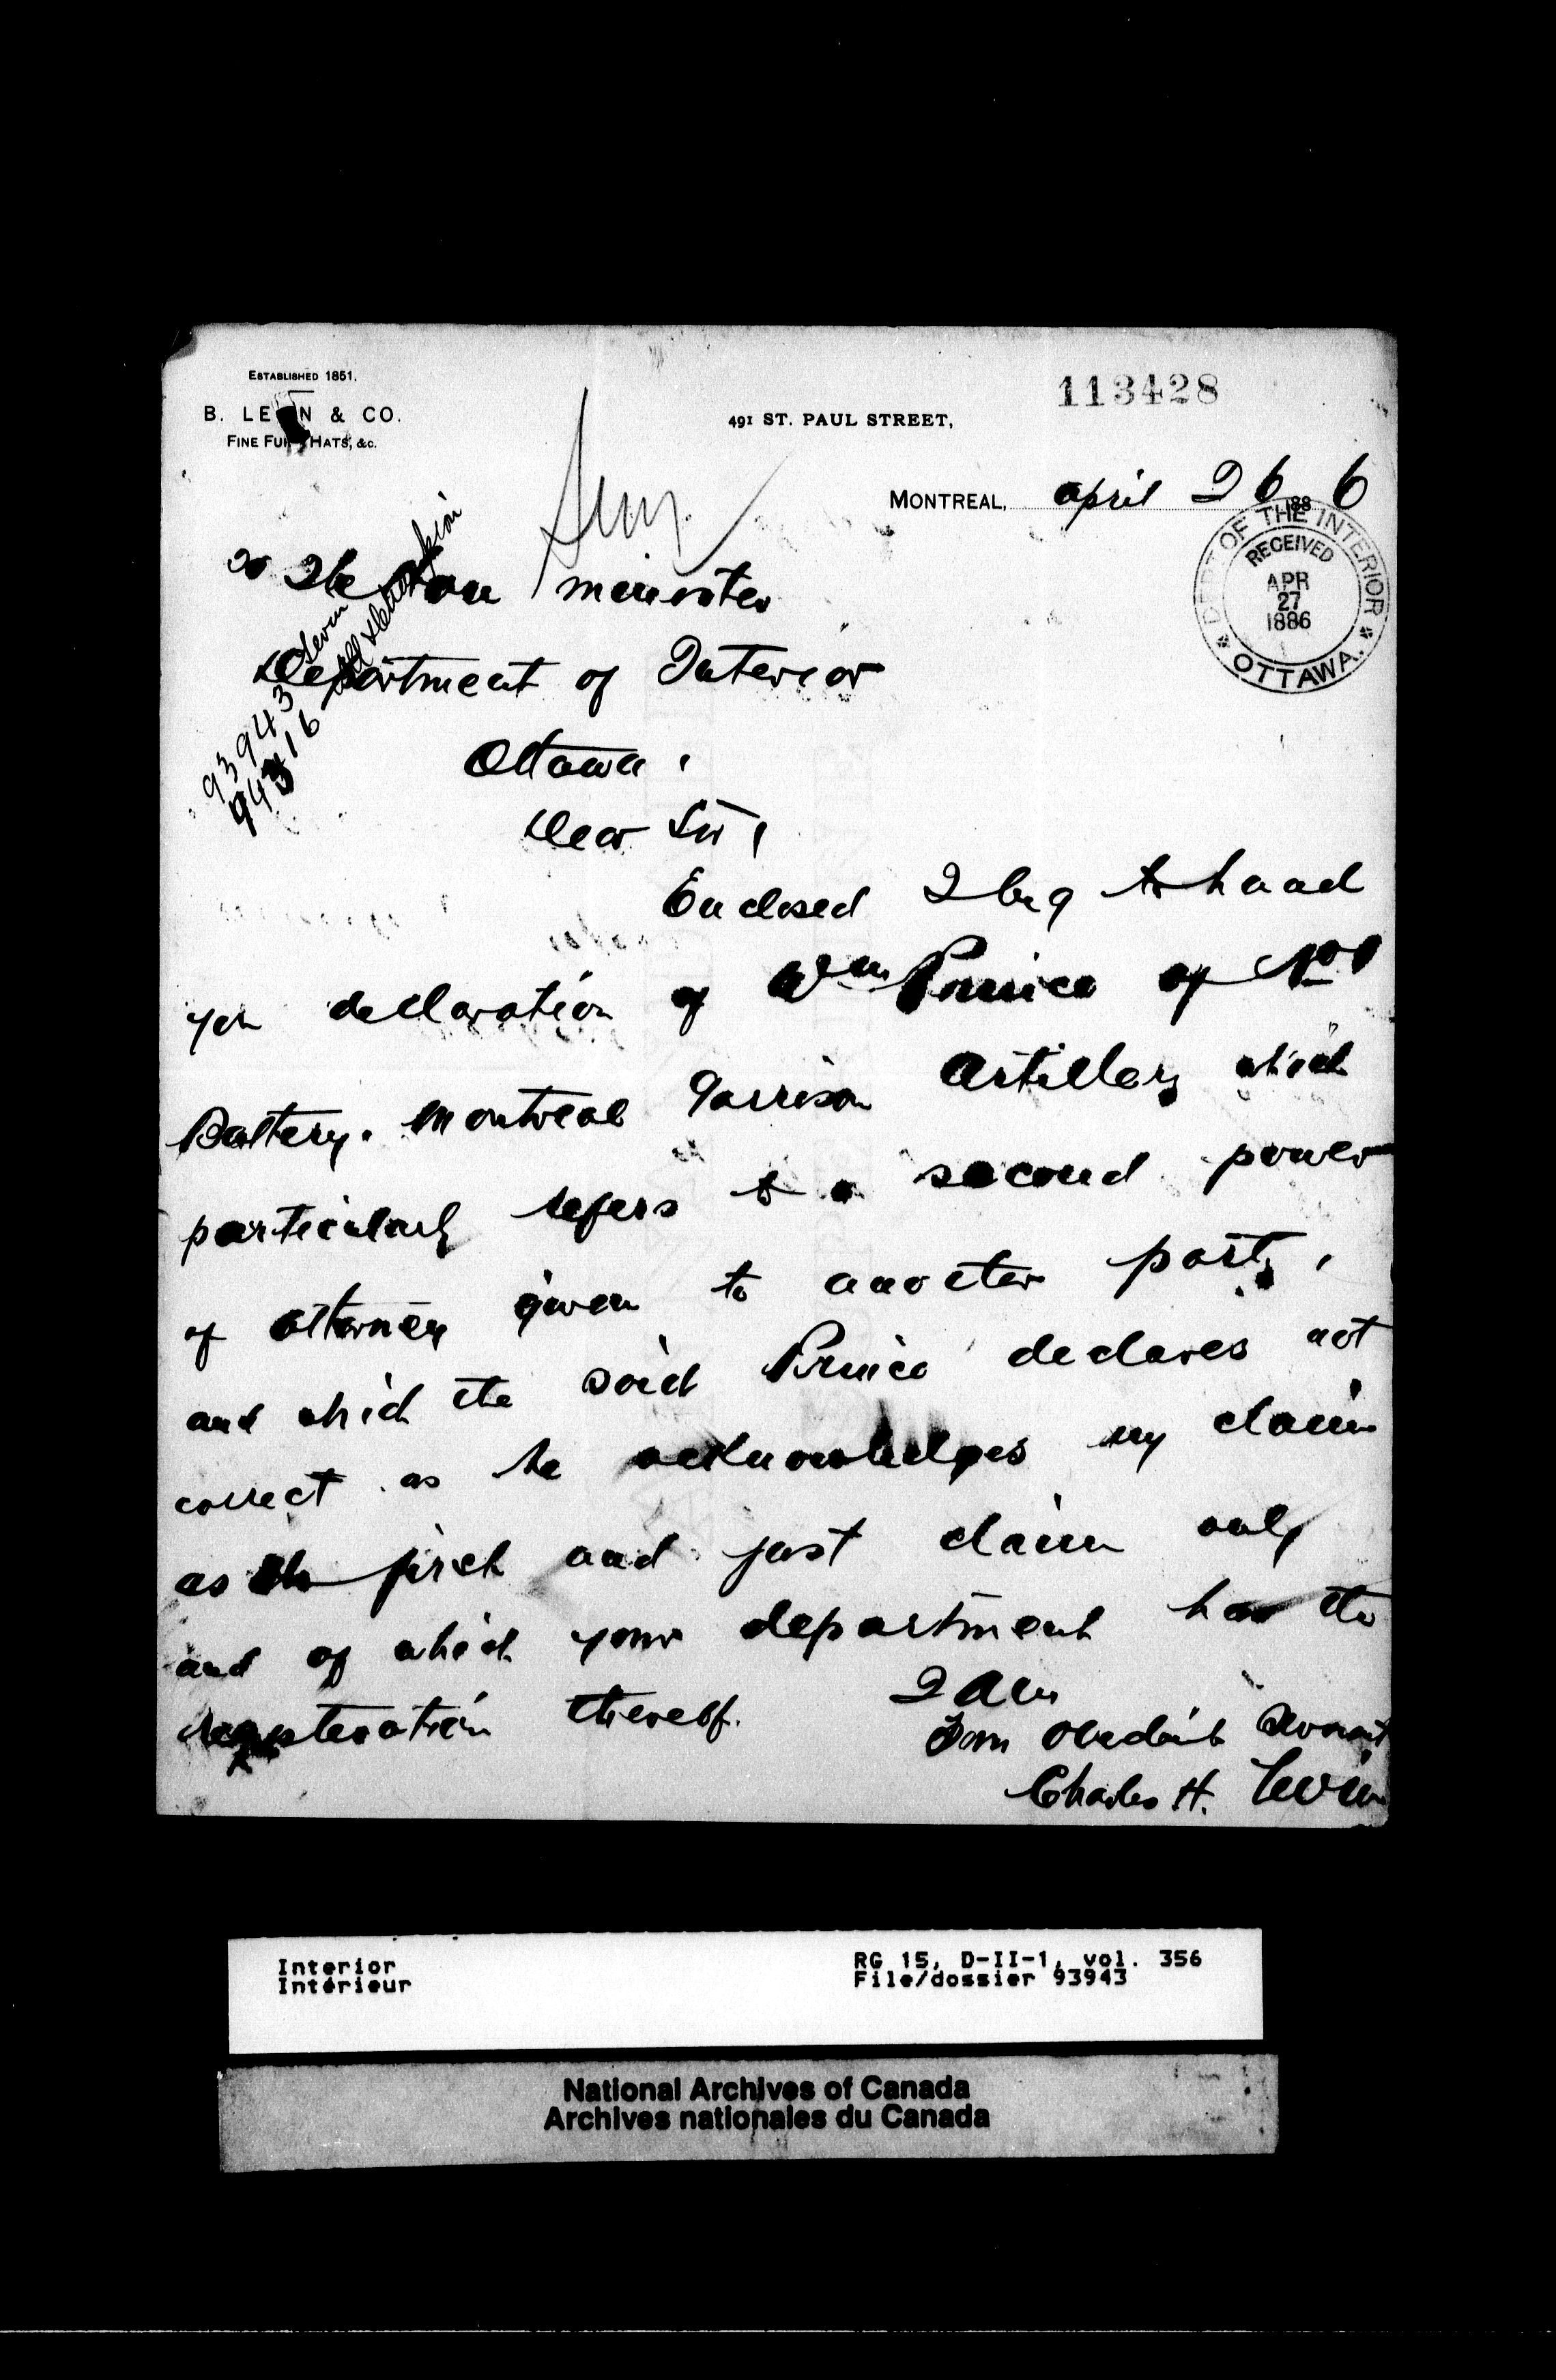 ESTABLISHED 1851.
B. LEVIN & CO.
FINE FURS, HATS, &c.
491 ST. PAUL STREET,
113428
MONTREAL, april 26 1886
DEPT OF THE INTERIOR
RECEIVED
APR
27
1886
OTTAWA.
To The Hon minister
Department of Interior
Ottawa,
Dear Sir,
93943 Levin
94316
Enclosed I beg to hand
you declaration of Wm Prince of No 1
Battery. Montreal Garrison Artillery which
particularly refers to a second power
of attorney given to another party,
and which the said Prince declares not
correct as he acknowledges my claim
as the first and just claim only
and of which your department has the
registeration thereof.
I am
Your Obedient Servant
Charles H. Levin
Interior
Intérieur
RG 15, D-II-1, vol. 356
File/dossier 93943
National Archives of Canada
Archives nationales du Canada